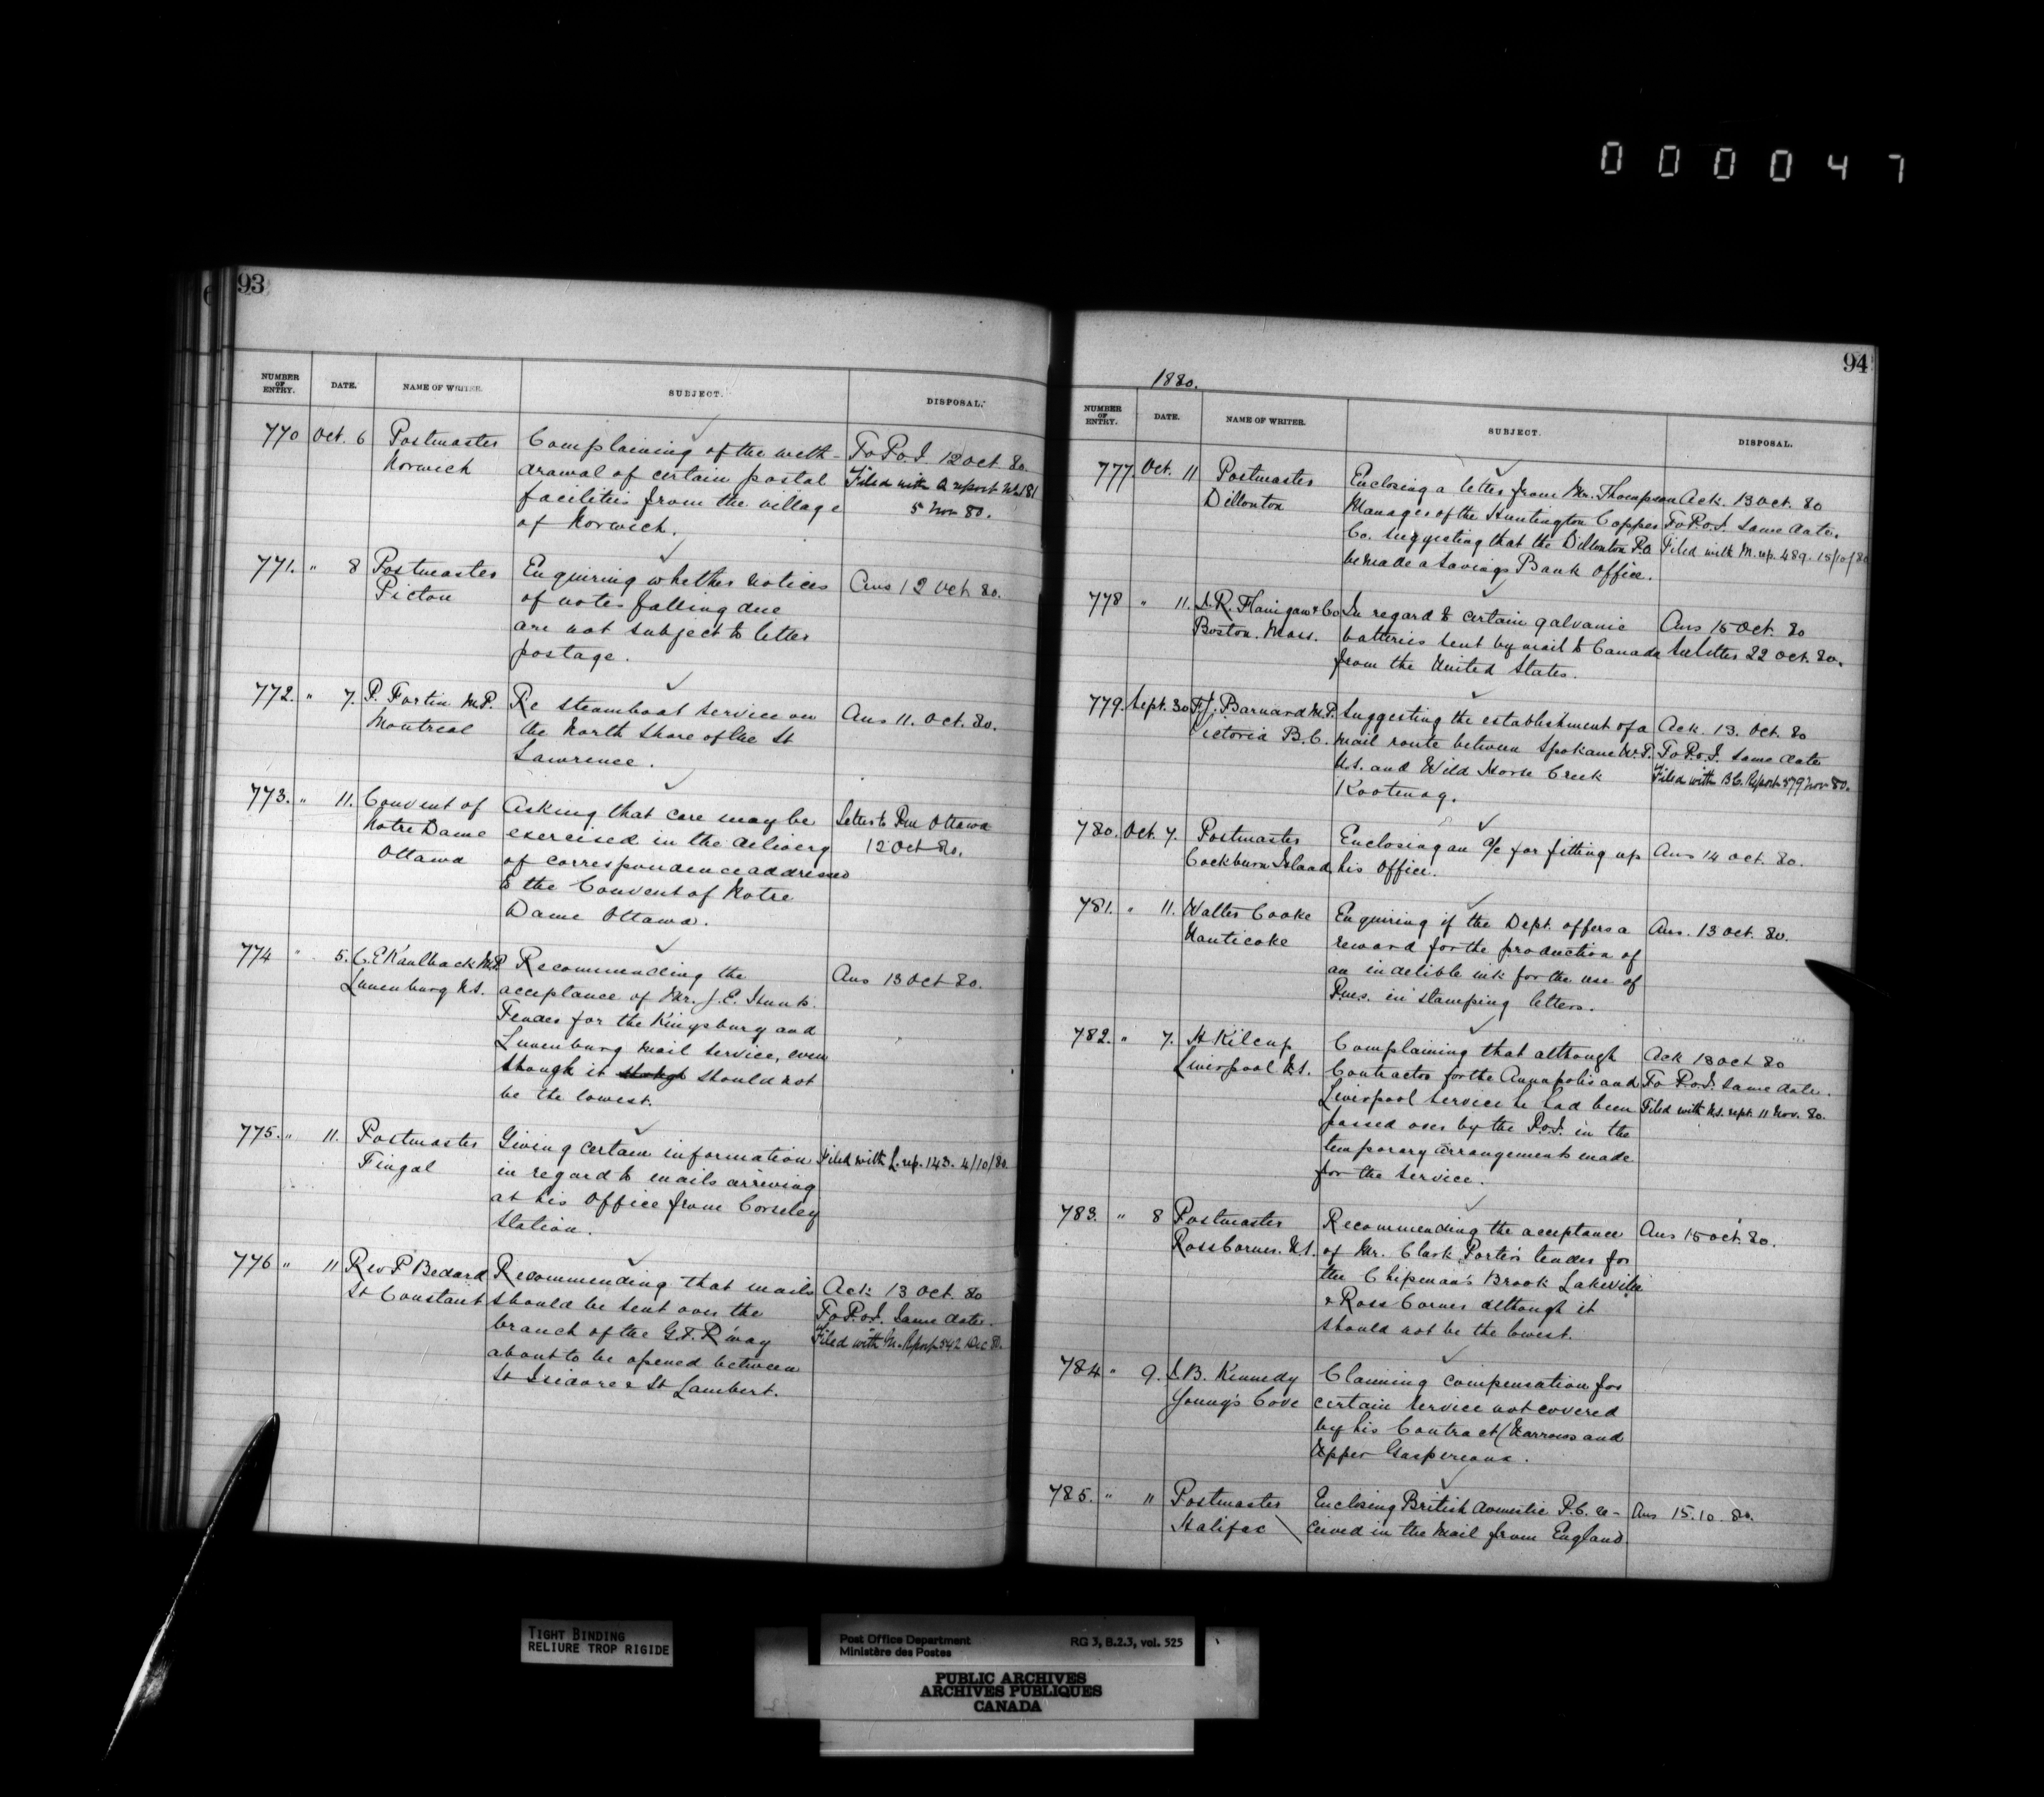 000047
93
NUMBER OF ENTRY. DATE. NAME OF WRITER. SUBJECT. DISPOSAL.
770 Oct. 6 Postmaster Complaining of the with- To P.O.I. 12 Oct. 80.
Norwich drawal of certain postal Filed with Q report No. 181
facilities from the village 5 Nov 80.
of Norwich.
771. " 8 Postmaster Enquiring whether notices Ans 12 Oct 80.
Picton of notes falling due
are not subject to letter
postage.
772. " 7. P. Fortin M.P. Re steamboat service on Ans 11. Oct. 80.
Montreal the North Shore of the St
Lawrence.
773. " 11. Convent of Asking that care may be Letter to Pm Ottawa
Notre Dame exercised in the delivery 12 Oct 80.
Ottawa of correspondence addressed
to the Convent of Notre
Dame Ottawa.
774 " 5. C. E. Kaulback M.P. Recommending the Ans 13 Oct 80.
Lunenburg N.S. acceptance of Mr. J. E.
Tender for the Kingsbury and
Lunenburg Mail Service, even
though it should not
be the lowest.
775. " 11. Postmaster Giving certain information Filed with L. rep. 143. 4/10/80.
Fingal in regard to mails arriving
at his Office from Corseley
Station.
776 " 11 Rev P Bedard Recommending that mails Ack 13 Oct. 80
St Constant should be sent over the To P.O.I. Same date.
branch of the G.T. R'way Filed with M. Report 542 Dec 80.
about to be opened between
St Isidore & St Lambert.
94
1880.
NUMBER OF ENTRY. DATE. NAME OF WRITER. SUBJECT. DISPOSAL.
777. Oct. 11 Postmaster Enclosing a letter from Mr. Thompson Ack. 13 Oct. 80
Dillonton Manager of the Huntington Copper To P.O.I. same date.
Co. suggesting that the Dillonton P.O. Filed with M. rep. 489. 15/10/80
be made a Savings Bank Office.
778 " 11. Flanigan & Co In regard to certain galvanic Ans 15 Oct. 80
Boston. Mass. batteries sent by mail to Canada See letter 22 Oct. 80.
from the United States.
779. Sept. 30 F.J. Barnard M.P. Suggesting the establishment of a Ack. 13. Oct. 80
Victoria B.C. mail route between Spokane W.T. To P.O.I. same date
U.S. and Wild Horse Creek Filed with B.C. Report 579 Nov 80.
Kootenay.
780. Oct. 7. Postmaster Enclosing an a/c for fitting up Ans 14 Oct. 80.
Cockburn Island his Office.
781. " 11. Walter Cooke Enquiring if the Dept. offers a Ans. 13 Oct. 80.
Nanticoke reward for the production of
an indelible ink for the use of
Pms. in stamping letters.
782. " 7. H Kilcup Complaining that although Ack 18 Oct 80
Liverpool N.S. Contractor for the Annapolis and To P.O.I. same date.
Liverpool service he had been Filed with N.S. rept. 11 Nov. 80.
passed over by the P.O.I. in the
temporary arrangements made
for the service.
783. " 8 Postmaster Recommending the acceptance Ans 15 Oct. 80.
Ross Corner. N.S. of Mr. Clark Porter's tender for
the Chipman's Brook Lakeville
& Ross Corner although it
should not be the lowest.
784 " 9. B. Kennedy Claiming compensation for
Young's Cove certain service not covered
by his Contract (Narrows and
Upper Gaspereaux.
785. " 11 Postmaster Enclosing British domestic P.C. re- Ans 15.10.80.
Halifax ceived in the Mail from England
TIGHT BINDING
RELIURE TROP RIGIDE
Post Office Department RG 3, B.2.3, vol. 525
Ministère des Postes
PUBLIC ARCHIVES
ARCHIVES PUBLIQUES
CANADA